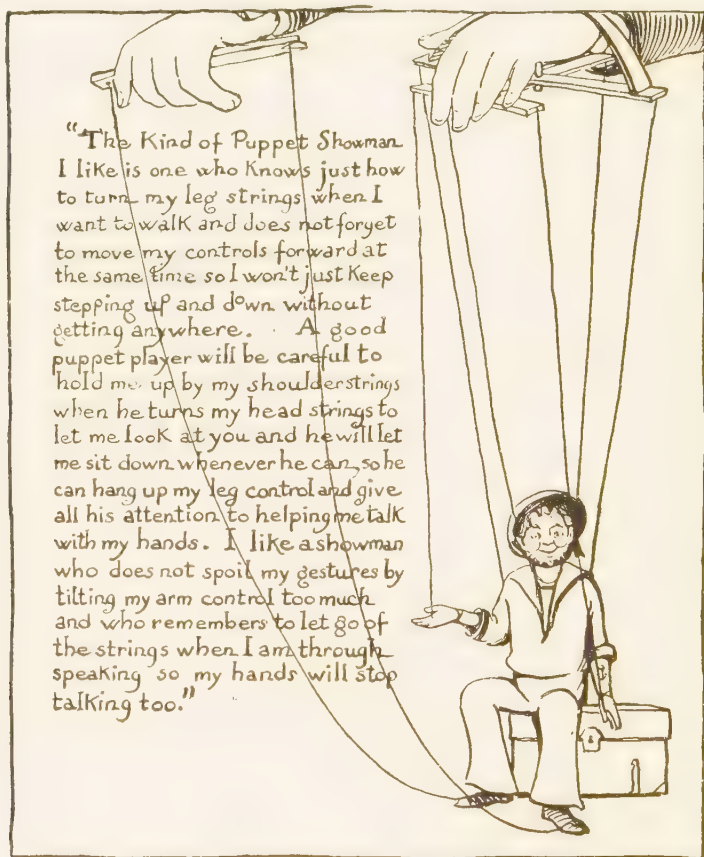 "The Kind of Puppet Showman
I like is one who knows just how
to turn my leg strings when I
want to walk and does not forget
to move my controls forward at
the same time so I won't just keep
stepping up and down without
getting anywhere. A good
puppet player will be careful to
hold me up by my shoulder strings
when he turns my head strings to
let me look at you and he will let
me sit down whenever he can, so he
can hang up my leg control and give
all his attention to helping me talk
with my hands. I like a showman
who does not spoil my gestures by
tilting my arm control too much
and who remembers to let go of
the strings when I am through
speaking so my hands will stop
talking too."